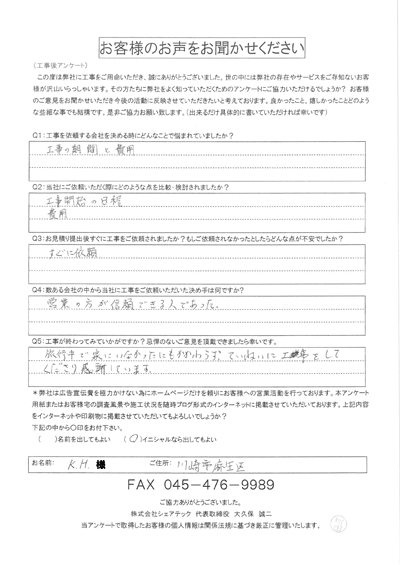 お客様のお声をお聞かせください
(工事後アンケート)
この度は弊社に工事をご用命いただき、誠にありがとうございました。世の中には弊社の存在やサービスをご存知ないお客
様が沢山いらっしゃいます。その方たちに弊社をよく知っていただくためのアンケートにご協力いただけるでしょうか? お客様
のご意見をお聞かせいただき今後の活動に反映させていただきたいと考えております。良かったこと、嬉しかったことどのよう
な些細な事でも結構です。是非ご協力お願い致します。(出来るだけ具体的に書いていただければ幸いです)
Q1:工事を依頼する会社を決める時にどんなことで悩まれていましたか?
工事の期間と費用
Q2:当社にご依頼いただく際にどのような点を比較・検討されましたか?
工事開始の日程
費用
Q3:お見積り提出後すぐに工事をご依頼されましたか?もしご依頼されなかったとしたらどんな点が不安でしたか?
すぐに依頼
Q4:数ある会社の中から当社に工事をご依頼いただいた決め手は何ですか?
営業の方が信頼できる人であった。
Q5:工事が終わってみていかがですか?忌憚のないご意見を頂戴できましたら幸いです。
旅行中で家にいなかったにもかかわらず、ていねいに工事をして
くださり感謝しています。
*弊社は広告宣伝費を極力かけない為にホームページだけを頼りにお客様への営業活動を行っております。本アンケート
用紙またはお客様宅の調査風景や施工状況を随時ブログ形式のインターネットに掲載させていただいております。上記内容
をインターネットや印刷物に掲載させていただいてもよろしいでしょうか?
下記の中から〇印をお付下さい。
( )名前を出してもよい (〇)イニシャルなら出してもよい
お名前: K.H. 様 ご住所: 川崎市麻生区
FAX 045-476-9989
ご協力ありがとうございました。
株式会社シェアテック 代表取締役 大久保 誠二
当アンケートで取得したお客様の個人情報は関係法規に基づき厳正に管理いたします。